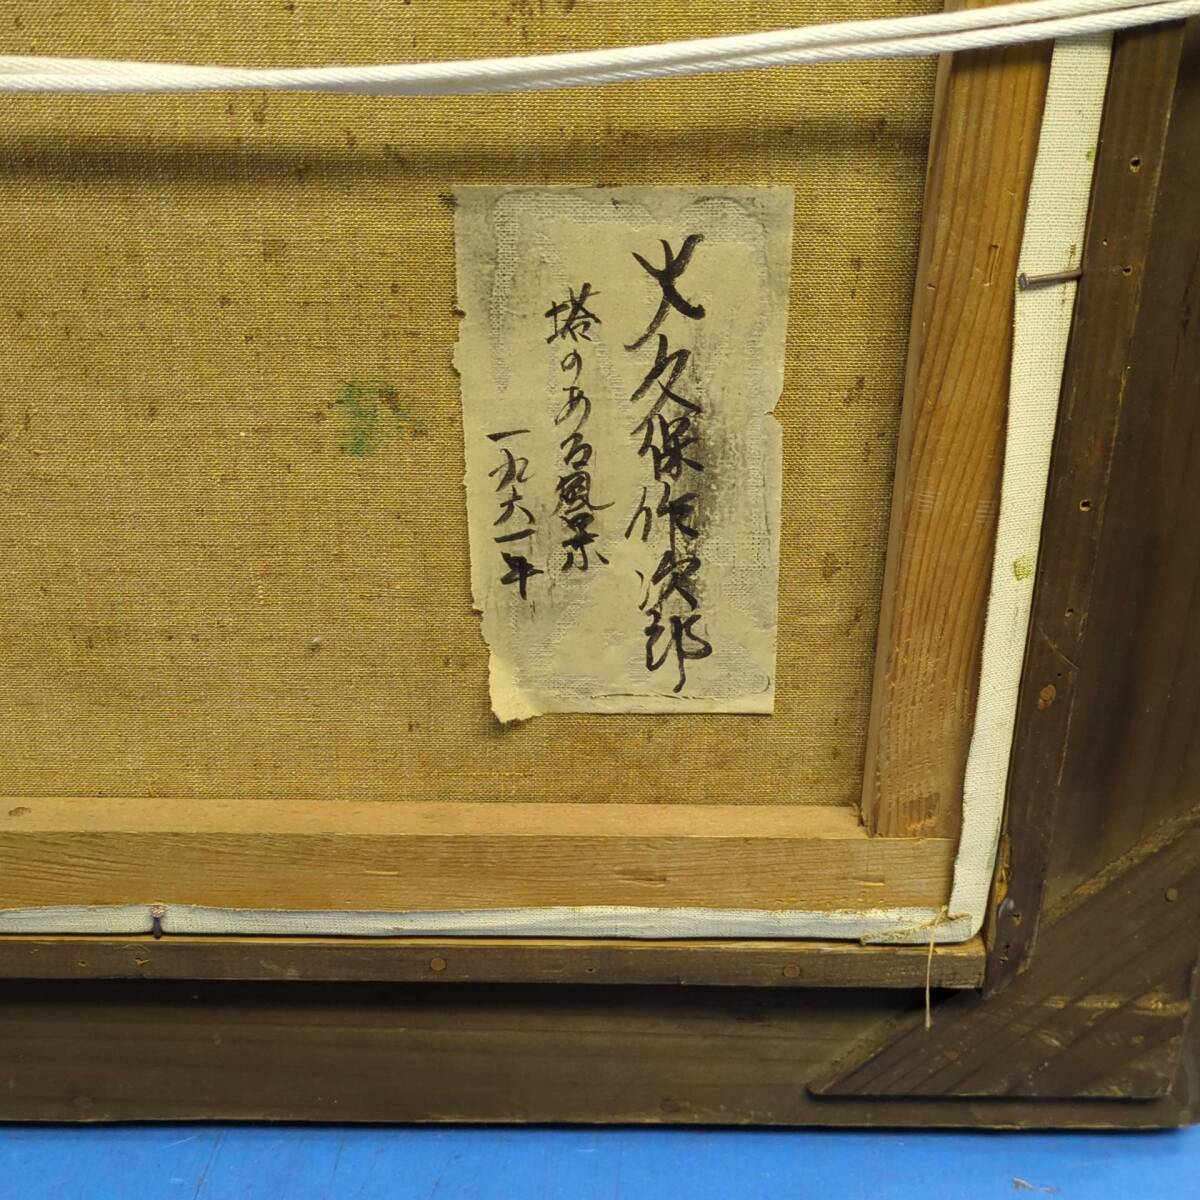 大久保作次郎
塔のある風景
一九六一年